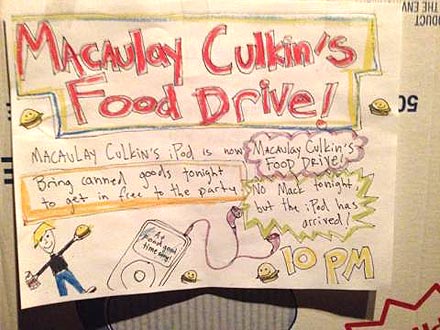 MACAULAY CULKIN'S
FOOD DRIVE!
MACAULAY CULKIN'S iPod is now
Macaulay Culkin's
FOOD DRIVE!
Bring canned goods tonight
to get in free to the party
No Mack tonight
but the iPod has
arrived!
time
10 PM
PRODUCT
THE ENV
50